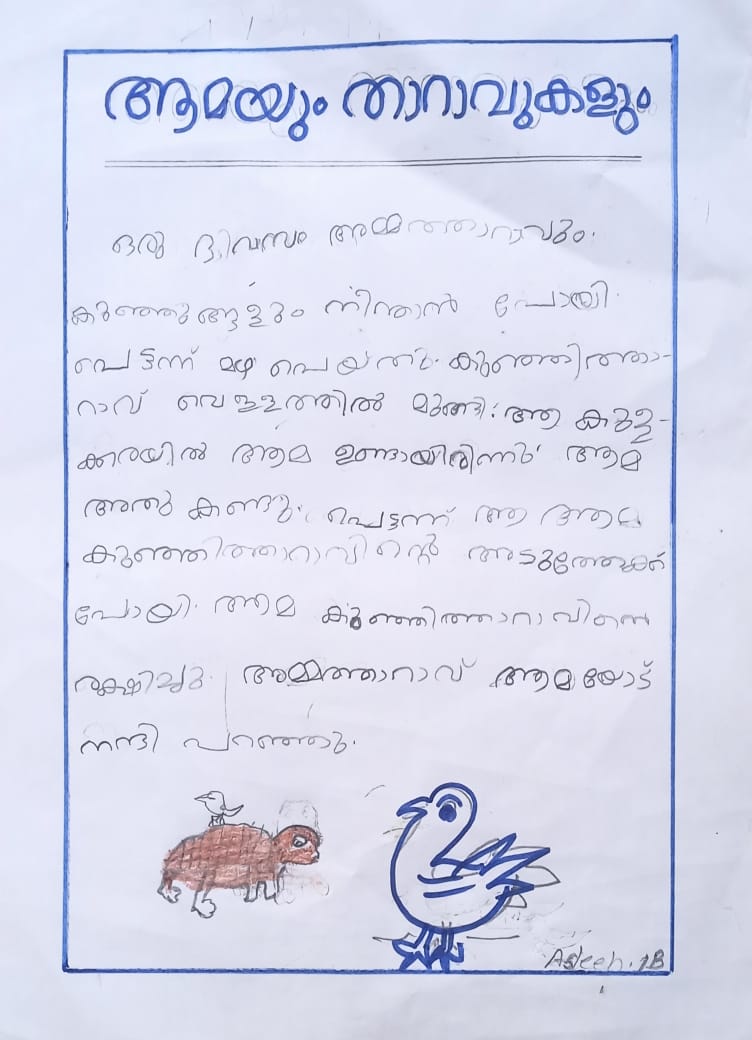 ആമയും താറാവുകളും
ഒരു ദിവസം അമ്മത്താറാവും.
കുഞ്ഞുങ്ങളും നീന്താൻ പോയി.
പെട്ടന്ന് മഴ പെയ്തു. കുഞ്ഞിത്താ-
റാവ് വെള്ളത്തിൽ മുങ്ങി. ആ കുള-
ക്കരയിൽ ആമ ഉണ്ടായിരുന്നു ആമ
അതു കണ്ടു. പെട്ടന്ന് ആ ആമ
കുഞ്ഞിത്താറാവിന്റെ അടുത്തേക്ക്
പോയി. ആമ കുഞ്ഞിത്താറാവിനെ
രക്ഷിച്ചു. അമ്മത്താറാവ് ആമയോട്
നന്ദി പറഞ്ഞു.
Asleeh. 1B